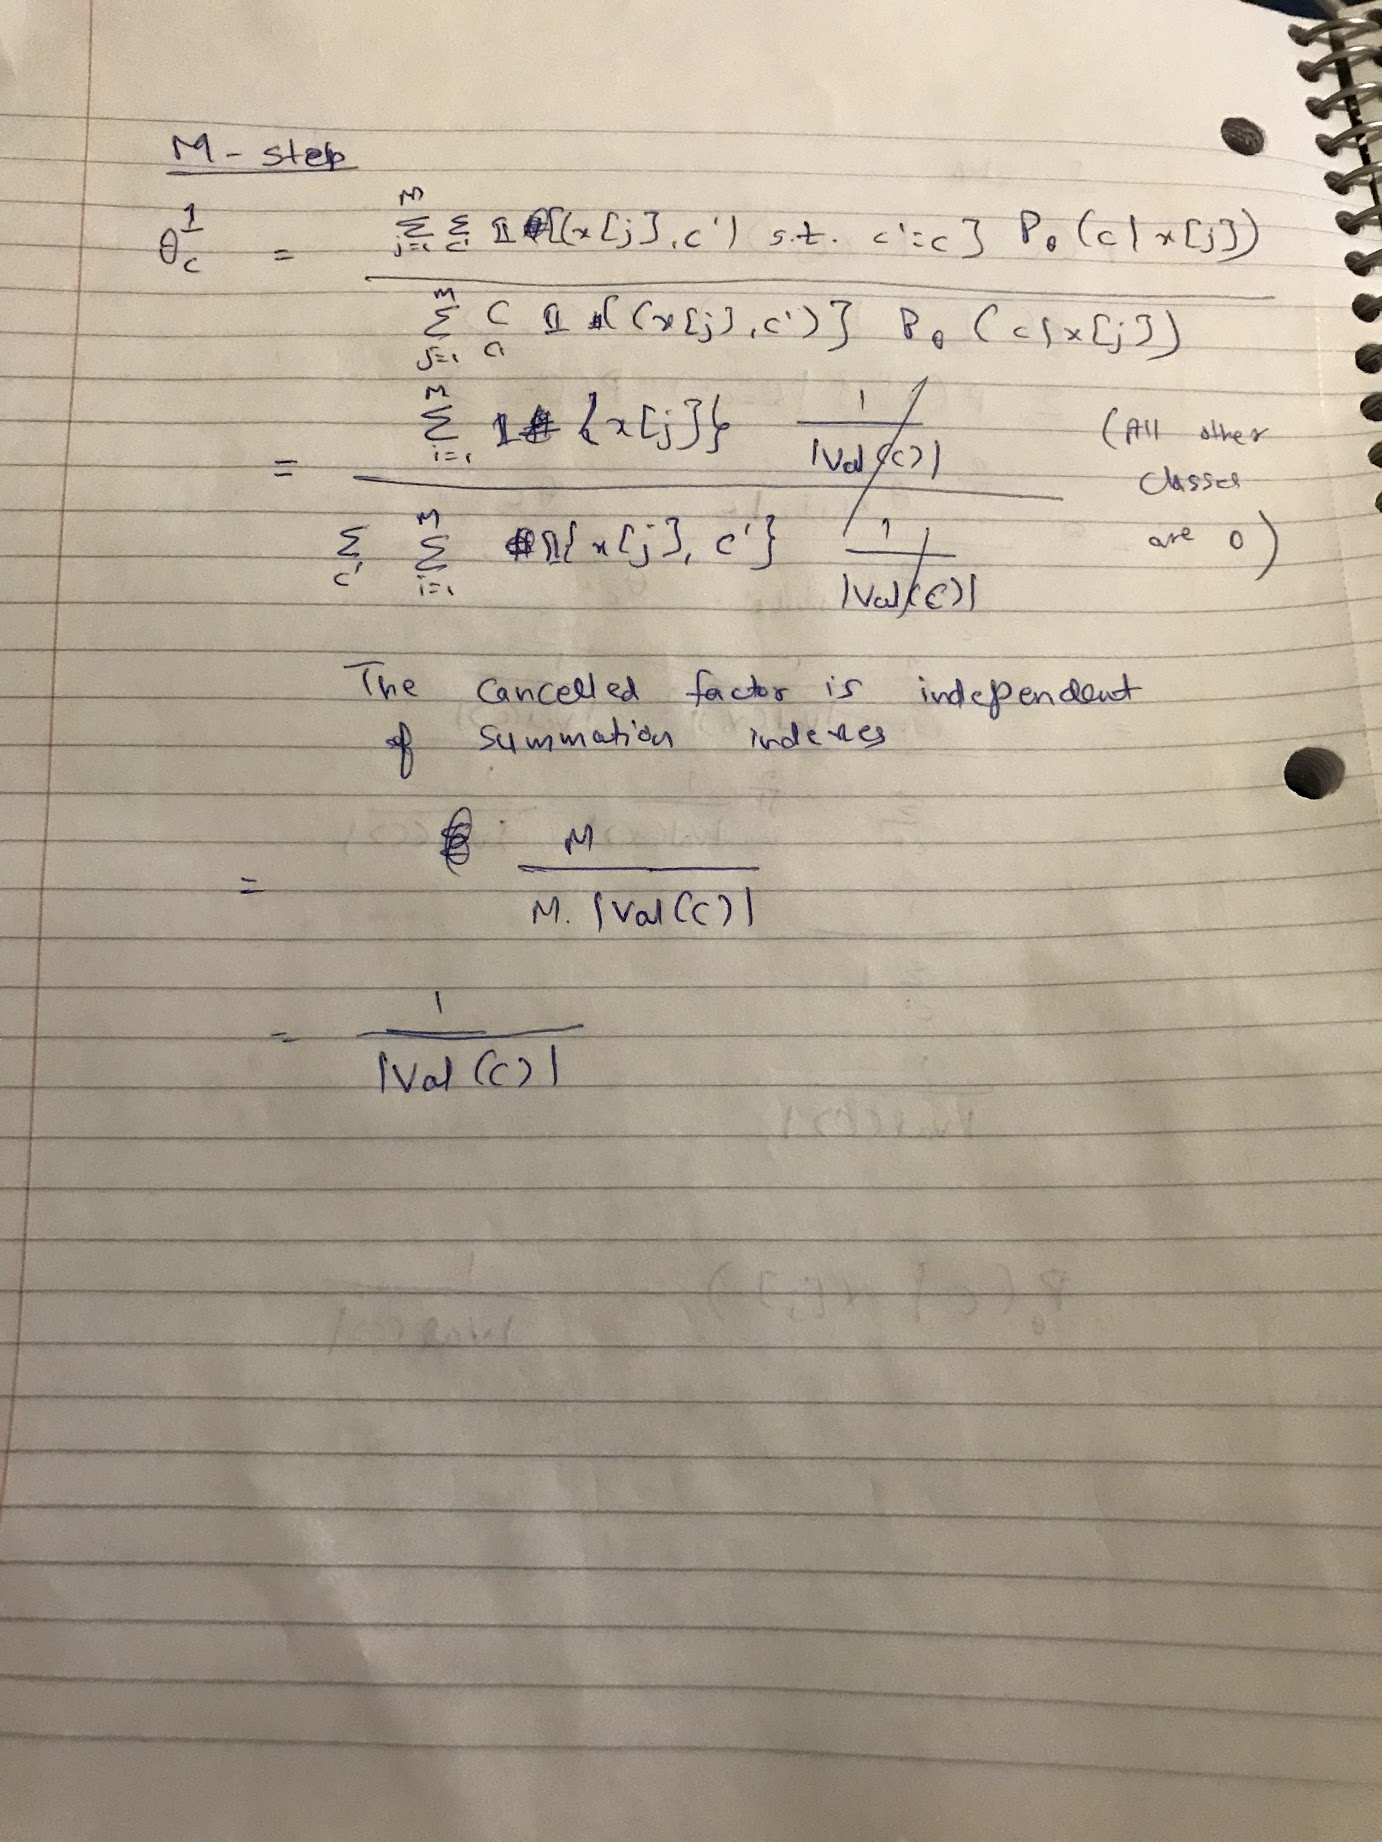 M-step
θ_c^1 = \frac{\sum_{j=1}^{M} \sum_{c'} 𝟙{(x[j], c') s.t. c'=c} P_θ(c|x[j])}{\sum_{j=1}^{M} C_{c'} 𝟙{(x[j], c')} P_θ(c|x[j])}
= \frac{\sum_{i=1}^{M} 𝟙{x[j]} \frac{1}{|Val(C)|}}{\sum_{c'} \sum_{i=1}^{M} 𝟙{x[j], c'} \frac{1}{|Val(C)|}} (All other
classes
are 0)
The cancelled factor is independent
of summation indexes
= \frac{M}{M. |Val(C)|}
= \frac{1}{|Val(C)|}